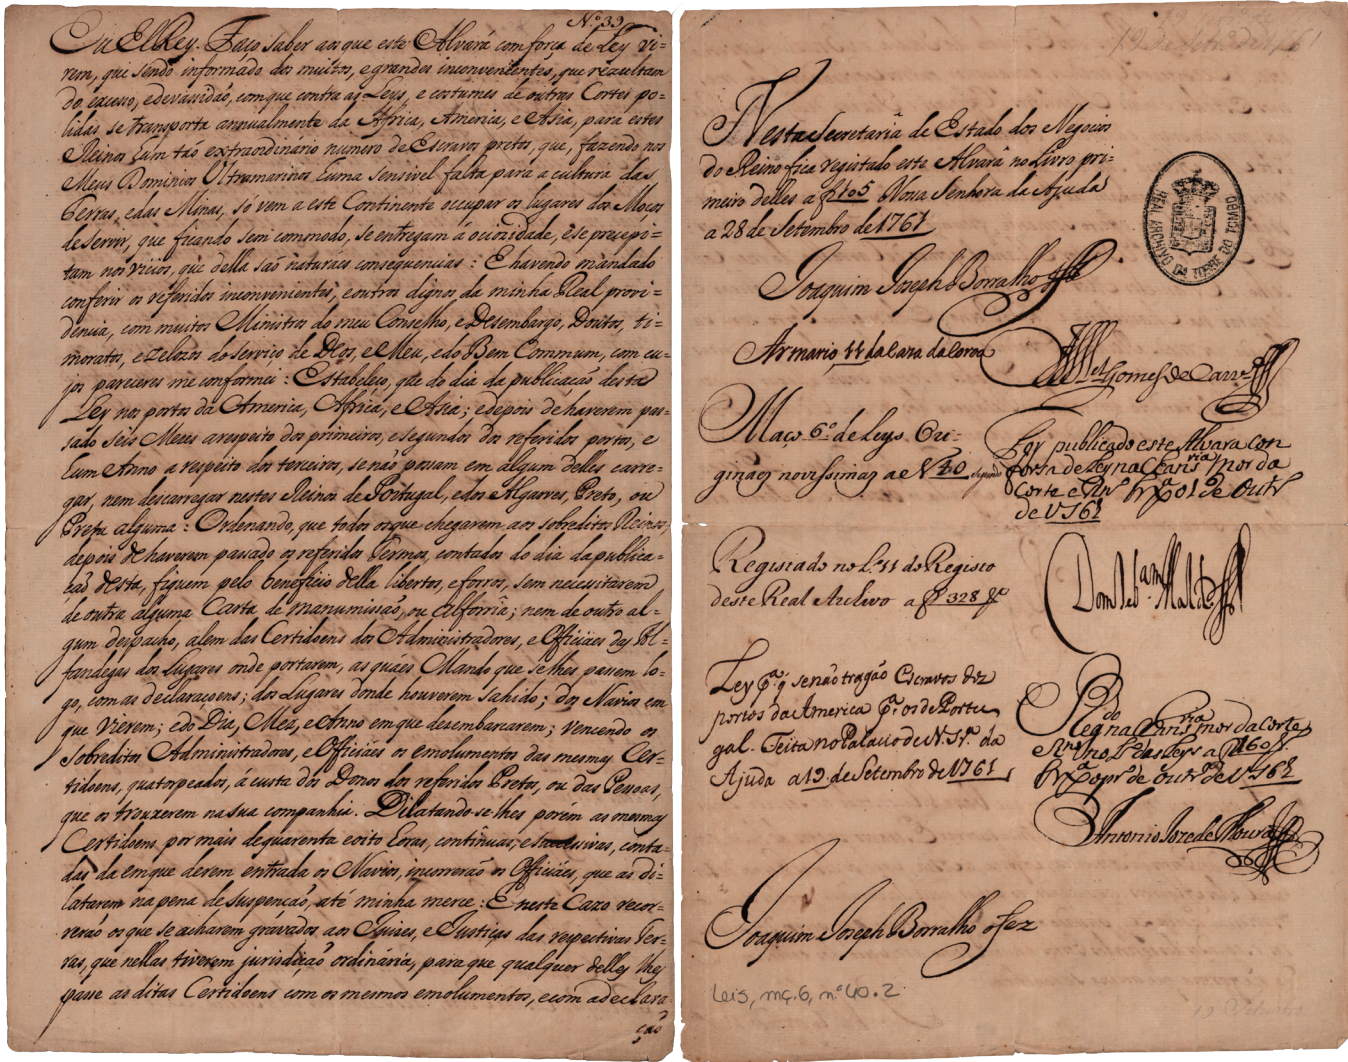 N.º 39
Eu ElRey. Faço saber aos que este Alvará com força de Ley vi=
rem, que sendo informado dos muitos, e grandes inconvenientes, que rezultam
do excesso, e devassidão, com que contra as Leys, e costumes de outras Cortes po=
lidas se transporta annualmente da Africa, America, e Asia, para estes
Reinos hum tão extraordinario numero de Escravos pretos, que, fazendo nos
Meus Dominios Ultramarinos huma sensivel falta para a cultura das
Terras, e das Minas, só vem a este Continente occupar os lugares dos Moços
de servir, que ficando sem commodo, se entregam á ociozidade, e se precepi=
tam nos vicios, que della são naturaes consequencias: E havendo mandado
conferir os referidos inconvenientes, e outros dignos da minha Real provi=
dencia, com muitos Ministros do meu Conselho, e Desembargo, Doutos, ti=
moratos, e zelozos do serviço de Deos, e Meu, e do Bem Commum, com cu=
jos pareceres me conformei: Estabeleço, que do dia da publicação desta
Ley nos portos da America, Africa, e Asia; e depois de haverem pas=
sado seis Mezes a respeito dos primeiros, e segundos dos referidos portos, e
hum Anno a respeito dos terceiros, se não possam em algum delles carre=
gar, nem descarregar nestes Reinos de Portugal, e dos Algarves, Preto, ou
Preta alguma: Ordenando, que todos os que chegarem aos sobreditos Reinos,
depois de haverem passado os referidos Termos, contados do dia da publica=
ção desta, fiquem pelo beneficio della libertos, e forros, sem necessitarem
de outra alguma Carta de manumissão, ou alforria; nem de outro al=
gum despacho, alem das Certidoens dos Administradores, e Officiaes das Al=
fandegas dos Lugares onde portarem, as quáes Mando que se lhes passem lo=
go, com as declaraçoens; dos Lugares donde houverem sahido; dos Navios em
que vierem; e do Dia, Mez, e Anno em que desembarcarem; vencendo os
sobreditos Administradores, e Officiáes os emolumentos das mesmas Cer=
tidoens, quatropeados, á custa dos Donos dos referidos Pretos, ou das Pessoas,
que os trouxerem na sua companhia. Dilatando-se-lhes porém as mesmas
Certidoens por mais de quarenta e oito horas, continuas, e successivas, conta=
das da em que derem entrada os Navios, incorrerão os Officiáes, que as di=
latarem na pena de suspenção, até minha merce: E neste Cazo recor=
rerão os que se acharem gravados aos Juizes, e Justiças das respectivas Ter=
ras, que nellas tiverem jurisdição ordinária, para que qualquer delles lhes
passe as ditas Certidoens com os mesmos emolumentos, e com a declara
ção
19 de Setr.º de 1761
Nesta Secretaria de Estado dos Negocios
do Reino fica registado este Alvará no Livro pri=
meiro delles a f 105 Nossa Senhora da Ajuda
a 28 de Setembro de 1761
Joaquim Joseph Borralho
REAL ARCHIVO DA TORRE DO TOMBO
Armario 11 da Caza da Coroa
M.el Gomes de Carv.º
Maço 6º de Leys Ori=
ginaes novissimas a e Nº 40 segundo
Foy publicado este Alvara con
forsa de Ley na Chansria mor da
Corte e Rn.º Lxª 01 de Outr
de 1761
Registado no L.º 11 do Registo
deste Real Archivo a f 328 Vº
Dom Sebam. Mald.º
Ley p.ª q̃ se não tragão Escravos dez
portos da America p.ª os de Portu
gal. Feita no Palacio de N. Sr.ª da
Ajuda a 19. de Setembro de 1761
Regdo na Chansria mor da Corte
e Rn.º no Lº das Leys a f 160 V.
Lxª o pr.º de Outr.º de 1761
Antonio Joze de Moura
Joaquim Joseph Borralho o fez
Leis, mç. 6, n.º 40. 2